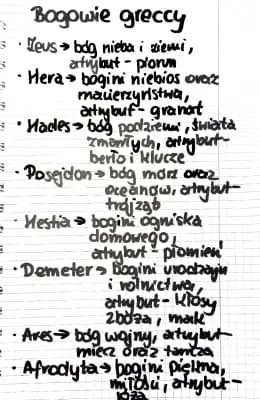 Bogowie greccy
• Zeus → bóg nieba i ziemi,
atrybut - piorun
• Hera → bogini niebios oraz
macierzyństwa,
atrybut - granat
• Hades → bóg podziemi, świata
zmarłych, atrybut -
berło i klucze
• Posejdon → bóg mórz oraz
oceanów, atrybut -
trójząb
• Hestia → bogini ogniska
domowego,
atrybut - płomień
• Demeter → bogini urodzaju
i rolnictwa,
atrybut - kłosy
zboża, mak
• Ares → bóg wojny, atrybut -
miecz oraz tarcza
• Afrodyta → bogini piękna,
miłości, atrybut -
róża